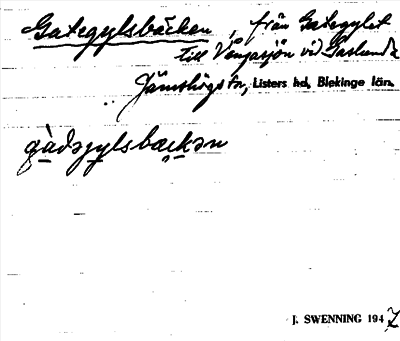 Gategylsbäcken, från Gategylet
till Vengasjön vid Gåslunda
Jämshögs sn, Listers hd, Blekinge län.
gàdəgylsbackən
J. SWENNING 1947